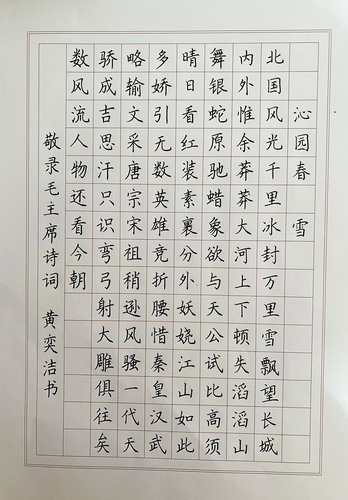 沁园春 雪
北国风光千里冰封万里雪飘望长城
内外惟余莽莽大河上下顿失滔滔山
舞银蛇原驰蜡象欲与天公试比高须
晴日看红装素裹分外妖娆江山如此
多娇引无数英雄竞折腰惜秦皇汉武
略输文采唐宗宋祖稍逊风骚一代天
骄成吉思汗只识弯弓射大雕俱往矣
数风流人物还看今朝
敬录毛主席诗词 黄奕洁书